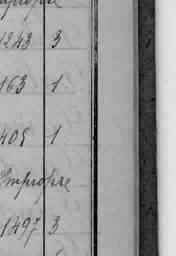 1243 3
163 1
405 1
Impropre
1497 3